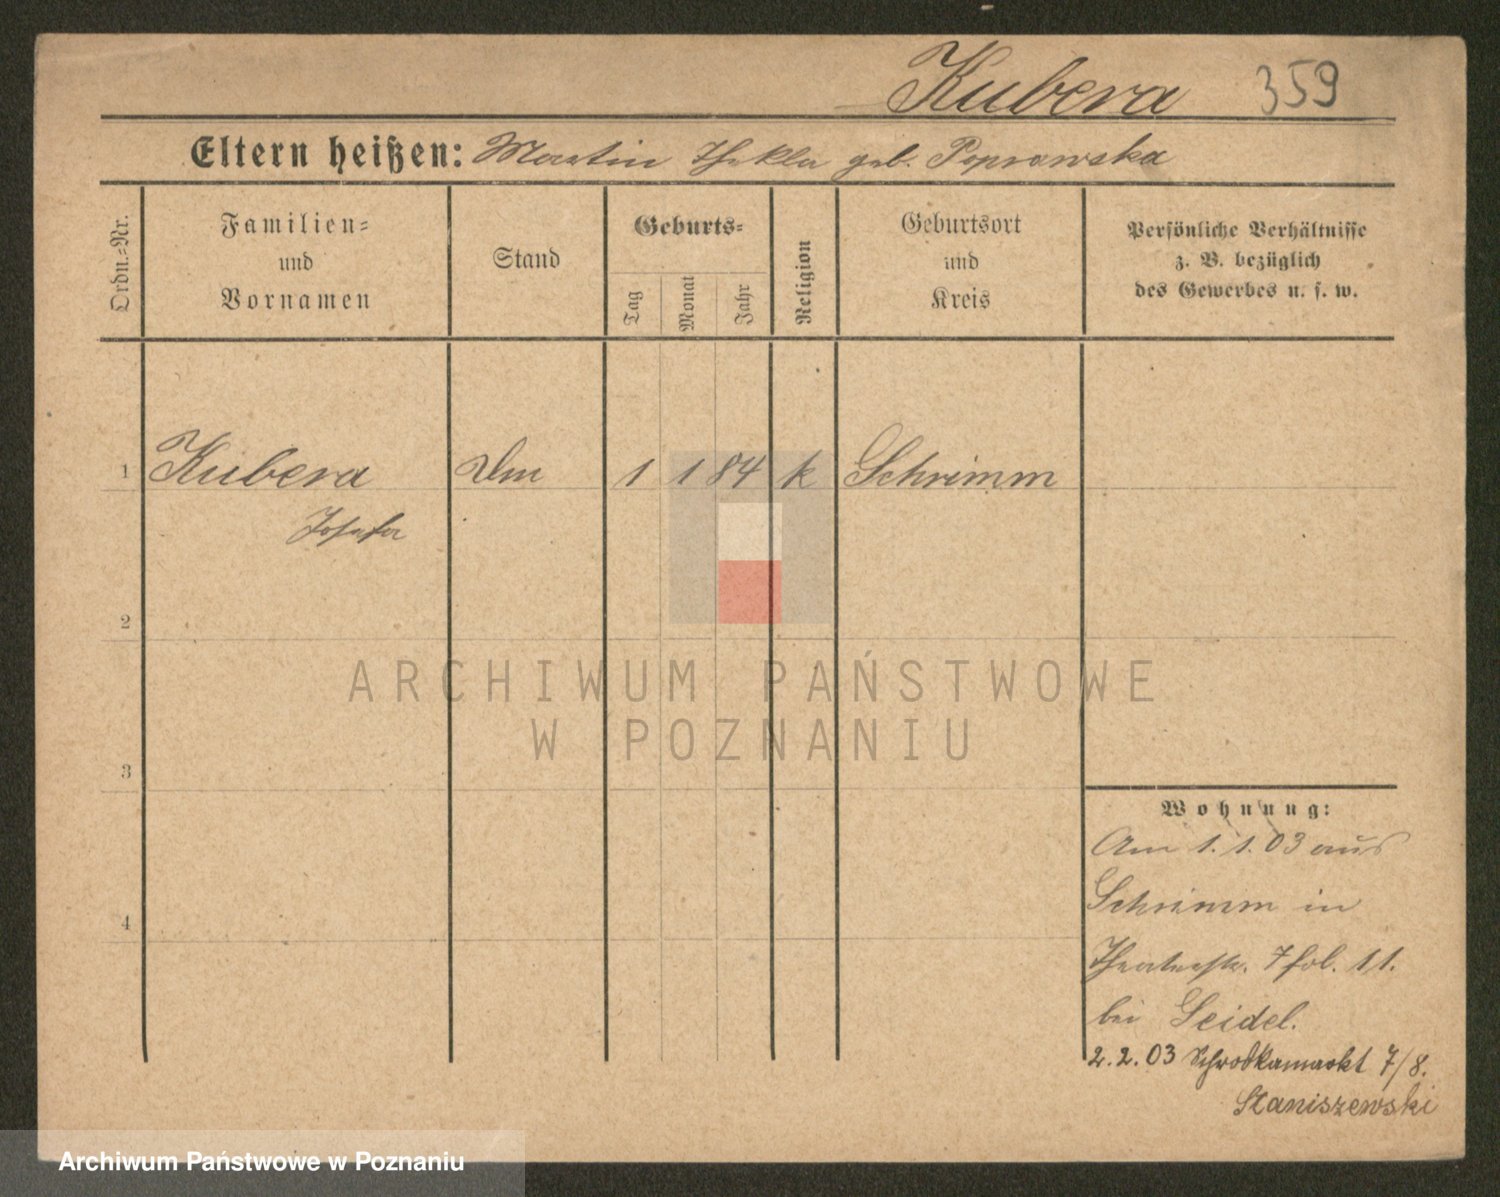 Kubera 359
Eltern heißen: Martin Thekla geb. Poprawska
Ordn.=Nr.
Familien=
und
Vornamen
Stand
Geburts=
Tag
Monat
Jahr
Religion
Geburtsort
und
Kreis
Persönliche Verhältnisse
z. B. bezüglich
des Gewerbes u. s. w.
1 Kubera 1 1 84 k Schrimm
Josefa
2
3
4
Wohnung:
Am 1.1.03 aus
Schrimm in
Theaterstr. 7 fol. 11.
bei Seidel.
2.2.03 Schrodkamarkt 7/8.
Staniszewski
ARCHIWUM PAŃSTWOWE
W POZNANIU
Archiwum Państwowe w Poznaniu